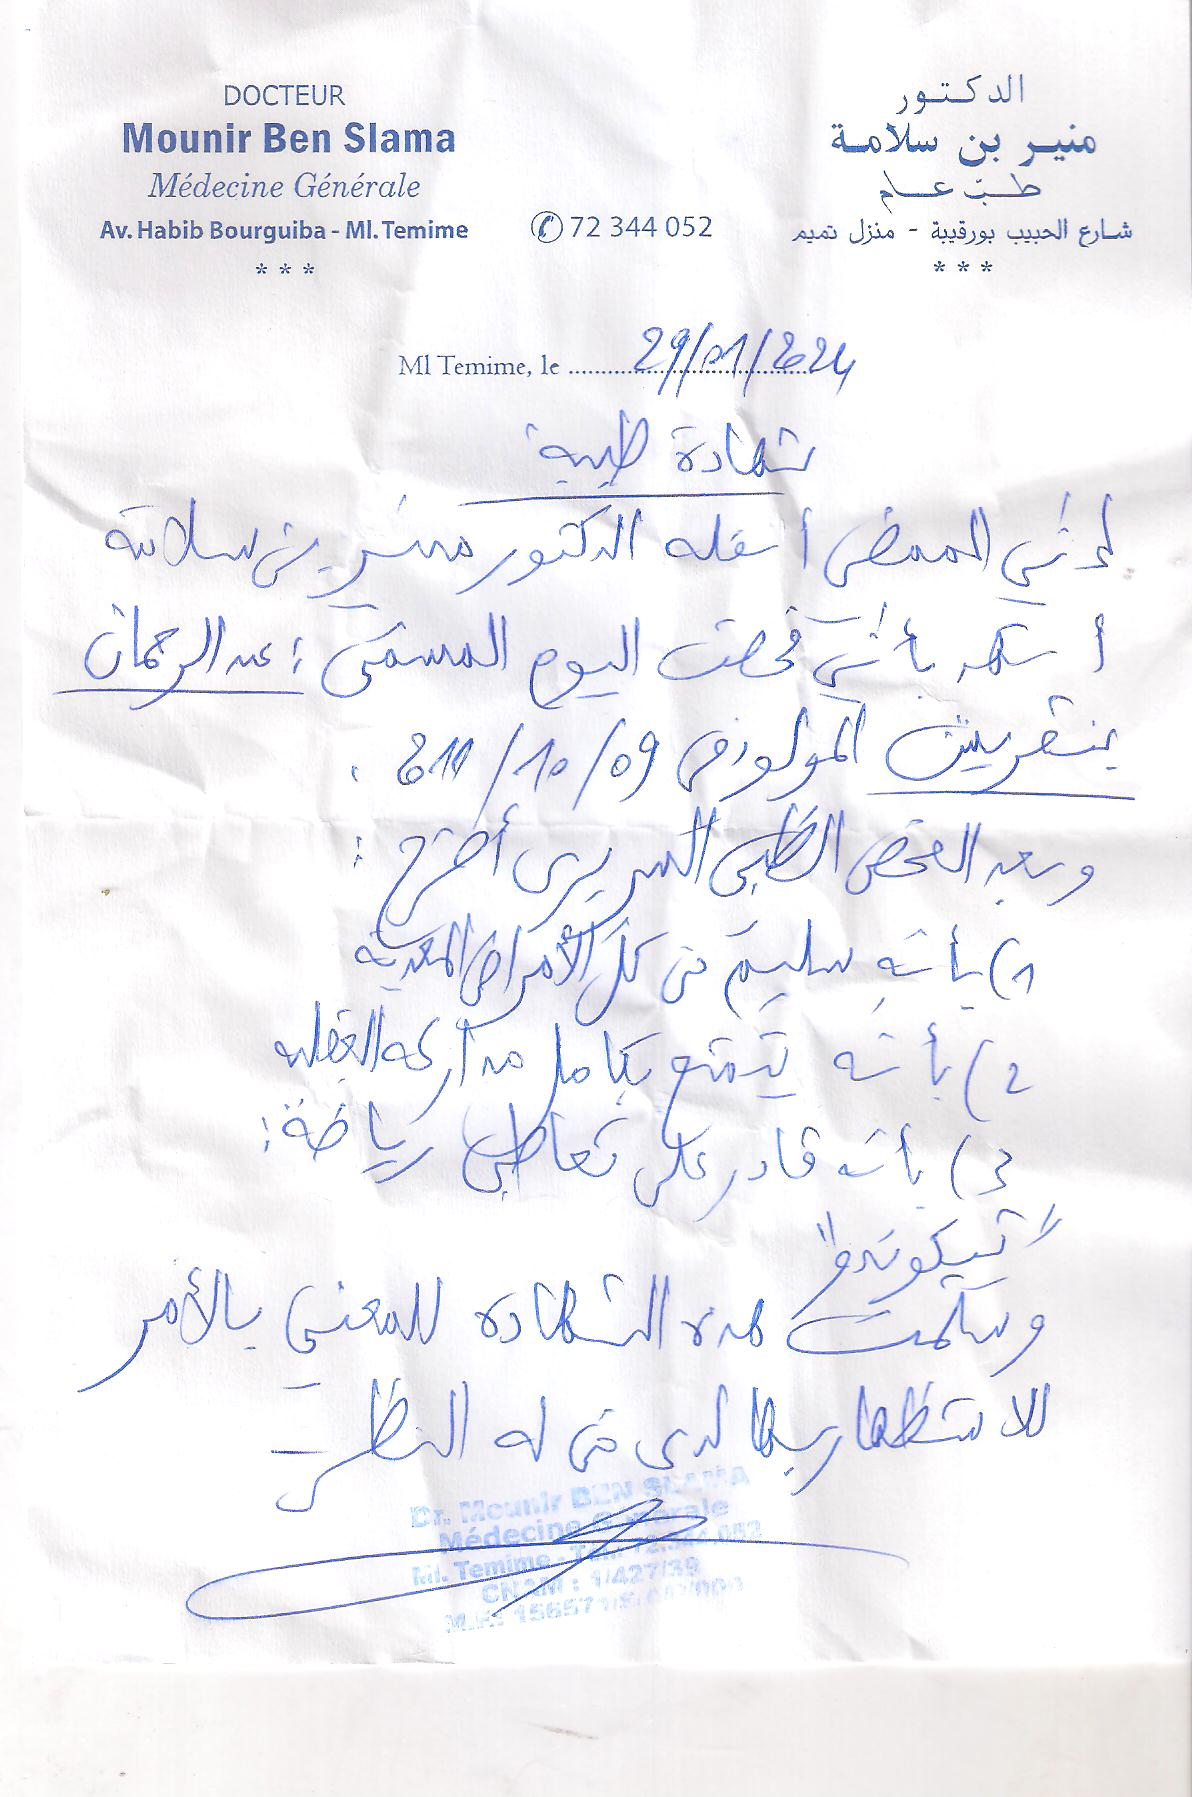 DOCTEUR
Mounir Ben Slama
Médecine Générale
Av. Habib Bourguiba - Ml. Temime
* * *
✆ 72 344 052
الدكتور
منير بن سلامة
طبّ عام
شارع الحبيب بورقيبة - منزل تميم
* * *
Ml Temime, le 29/01/2024
شهادة طبية
إنّي الممضي أسفله الدكتور منير بن سلامة
أشهد بأنّي فحصت اليوم المسمّى : عبد الرحمان
بنقرين المولود في 09/10/2011 .
وبعد الفحص الطّبي السريري أصرّح :
1) بأنّه سليم من كلّ الأمراض المعدية
2) بأنّه يتمتع بكامل مداركه العقلية
3) بأنّه قادر على تعاطي رياضة :
"تيكوندو"
وسلّمت هذه الشهادة للمعني بالأمر
للاستظهار بها لدى من له النظر
Dr. Mounir BEN SLAMA
Médecine Générale
Ml. Temime - Tél.: 72.344.052
CNAM : 1/427/39